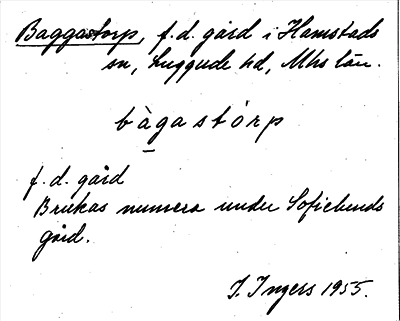 Baggastorp, f.d. gård i Hamstads
sn, Luggude hd, Mhs län.
bàgastórp
f. d. gård
Brukas numera under Sofielunds
gård.
I. Ingers 1955.